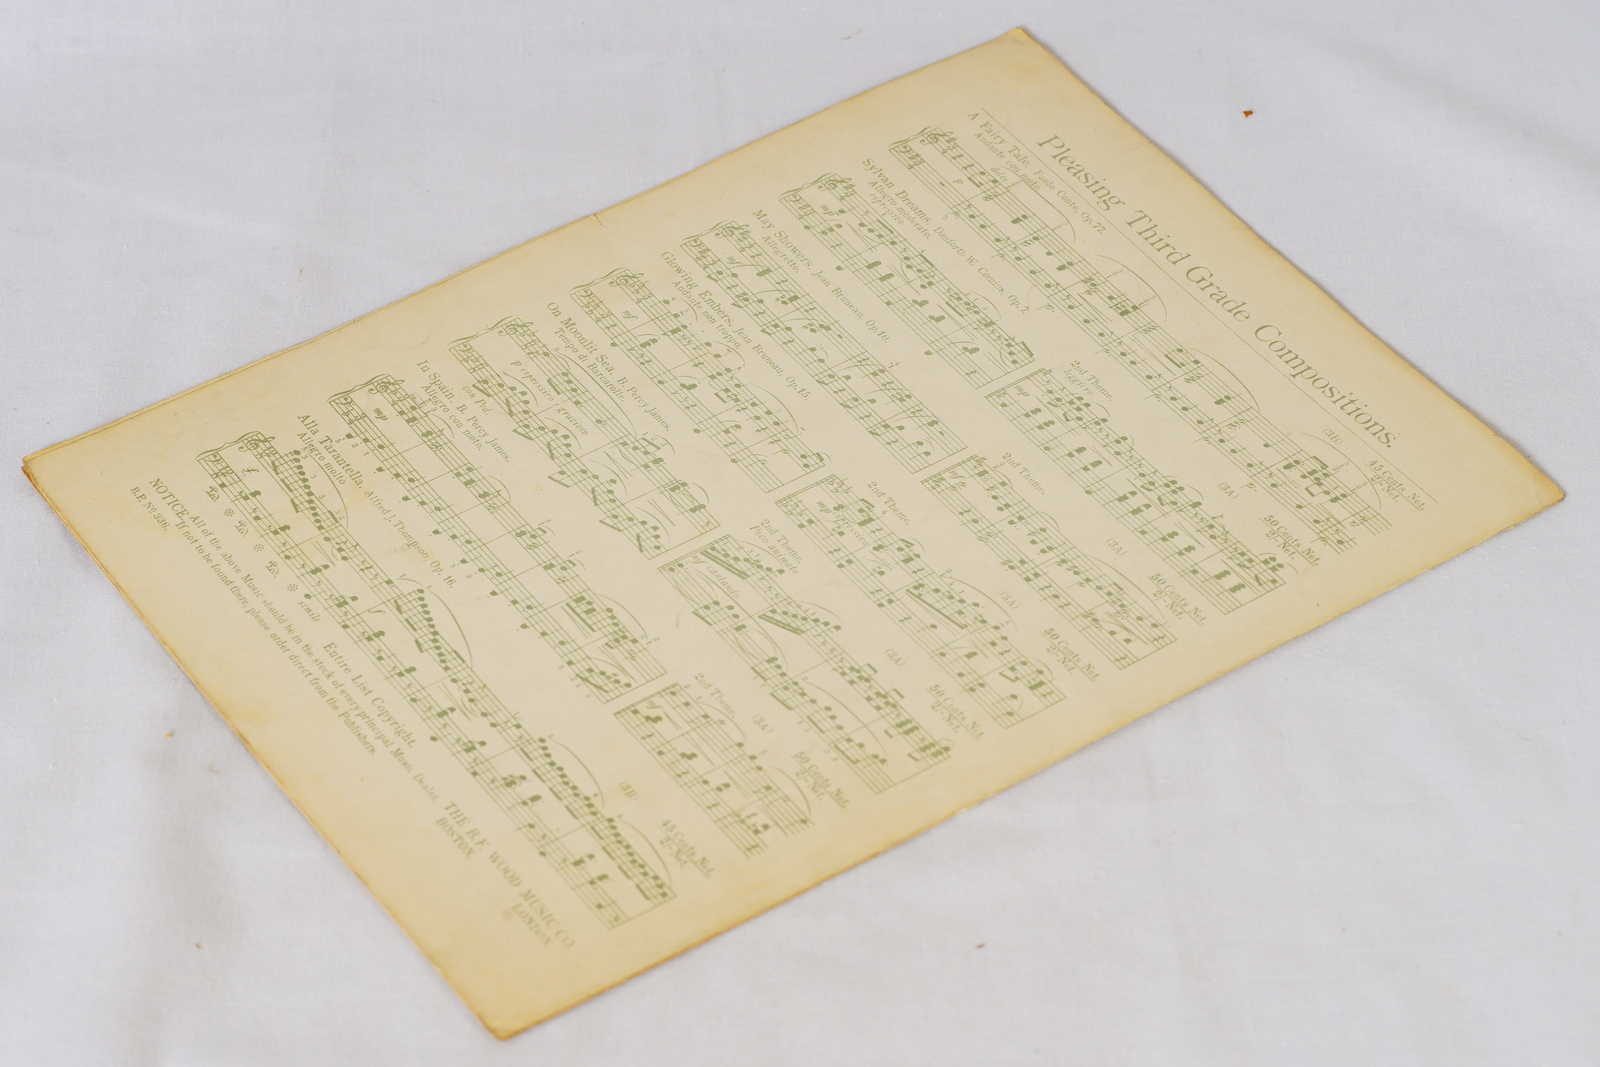 Pleasing Third Grade Compositions.
A Fairy Tale. Paolo Conte, Op. 77. (3B) 45 Cents Net.
Andante con moto. 2/- Net.
dolce
p
Sylvan Dreams. Danforth W. Comins, Op. 7. 2nd Theme. (3A) 50 Cents Net.
Allegro moderato. leggiero 2/- Net.
espressivo
mp mp
May Showers. Jean Bruneau, Op. 10. 2nd Theme. (3A) 50 Cents Net.
Allegretto. 2/- Net.
mf
Glowing Embers. Jean Bruneau, Op. 15. 2nd Theme. (3A) 50 Cents Net.
Andante non troppo. 2/- Net.
mf mp
On Moonlit Sea. B. Percy James. 2nd Theme. (3A) 50 Cents Net.
Tempo di Barcarolle. Poco animato 2/- Net.
p espressivo, grazioso
con Ped.
In Spain. B. Percy James. 2nd Theme. (3A) 50 Cents Net.
Allegro con moto. 2/- Net.
mp mf
Alla Tarantella. Alfred J. Thompson, Op. 16. (3B) 45 Cents Net.
Allegro molto 2/- Net.
simile
Entire List Copyright.
NOTICE. All of the above Music should be in the stock of every principal Music Dealer.
If not to be found there, please order direct from the Publishers.
B.F. No 336
THE B.F. WOOD MUSIC CO.
BOSTON. LONDON.